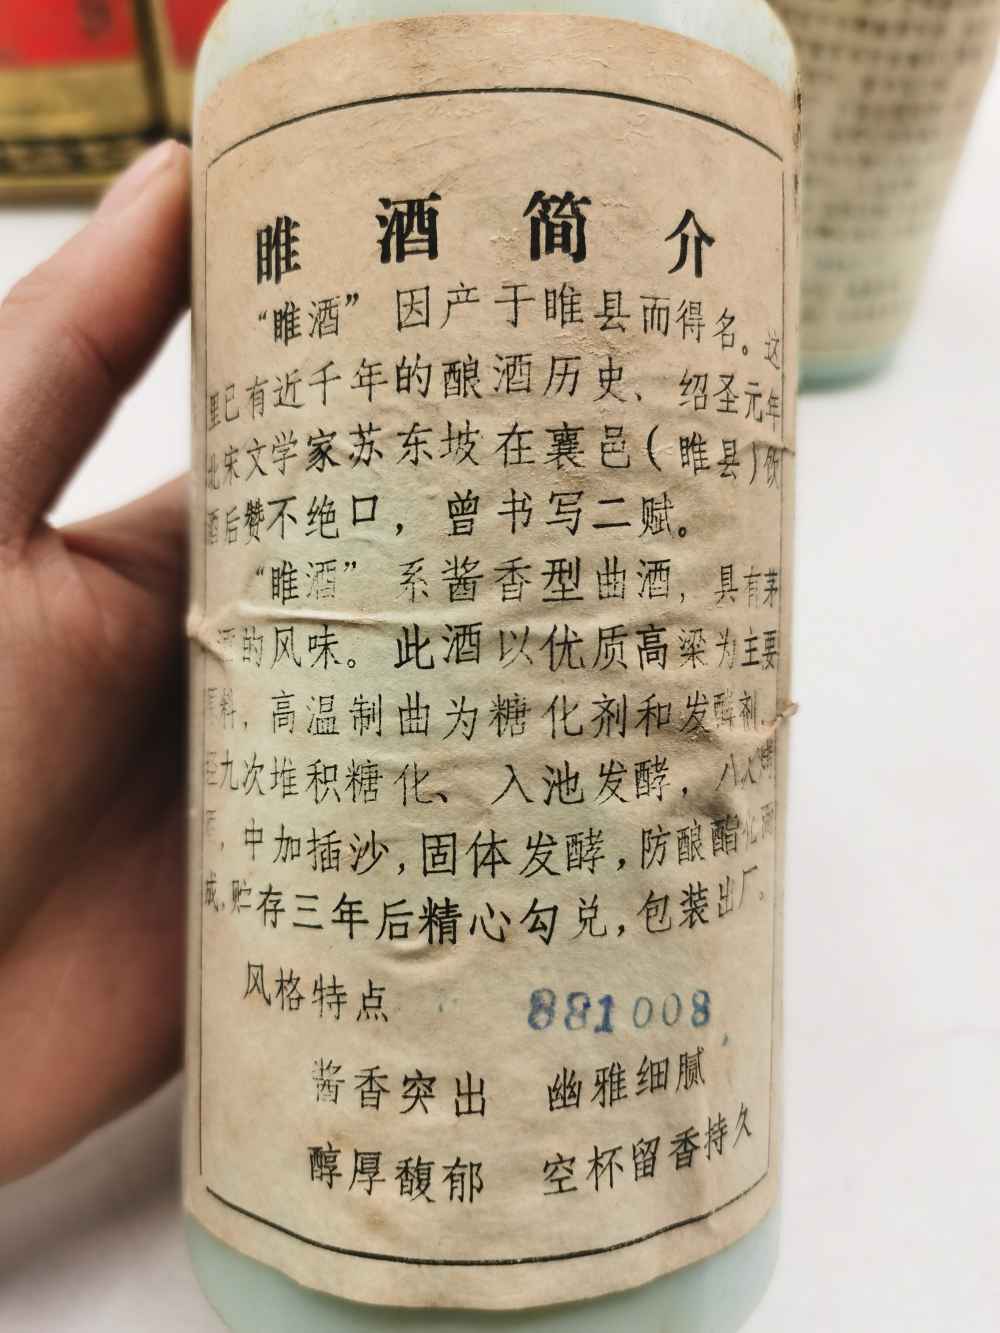 睢酒简介
“睢酒”因产于睢县而得名。这
里已有近千年的酿酒历史、绍圣元年
北宋文学家苏东坡在襄邑(睢县)饮
酒后赞不绝口，曾书写二赋。
“睢酒”系酱香型曲酒，具有茅
酒的风味。此酒以优质高粱为主要
原料，高温制曲为糖化剂和发酵剂，
经九次堆积糖化、入池发酵，八次烤
酒，中加插沙，固体发酵，防酿酯化而
成，贮存三年后精心勾兑，包装出厂。
风格特点
881008
酱香突出 幽雅细腻
醇厚馥郁 空杯留香持久